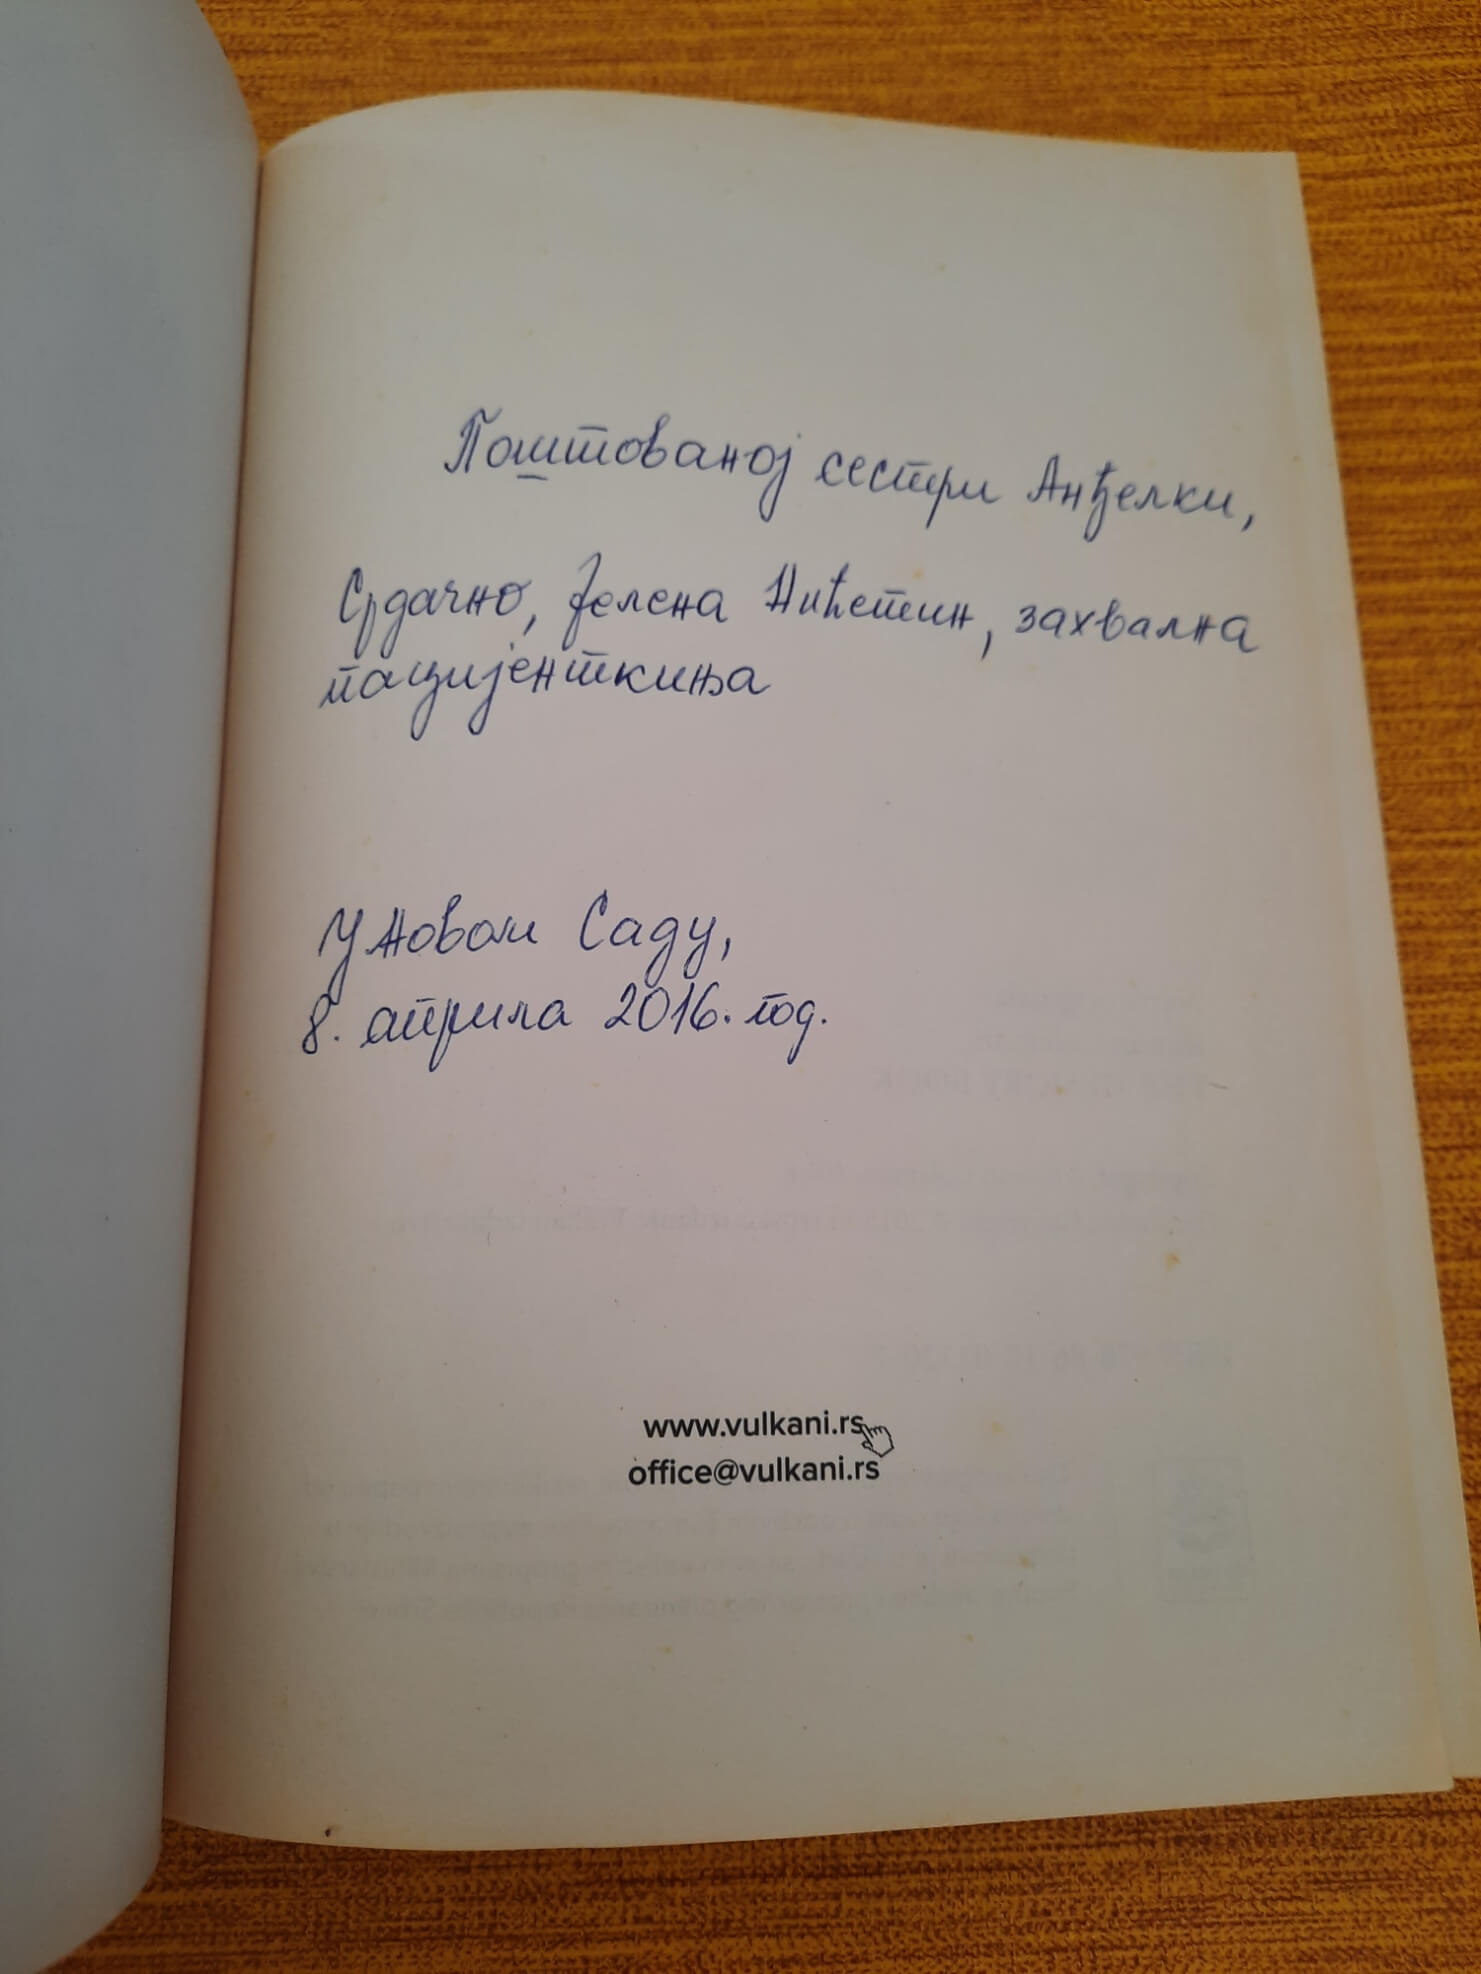 Поштованој сестри Анђелки,
Срдачно, Јелена Нићетин, захвална
пацијенткиња
У Новом Саду,
8. априла 2016. год.
www.vulkani.rs
office@vulkani.rs